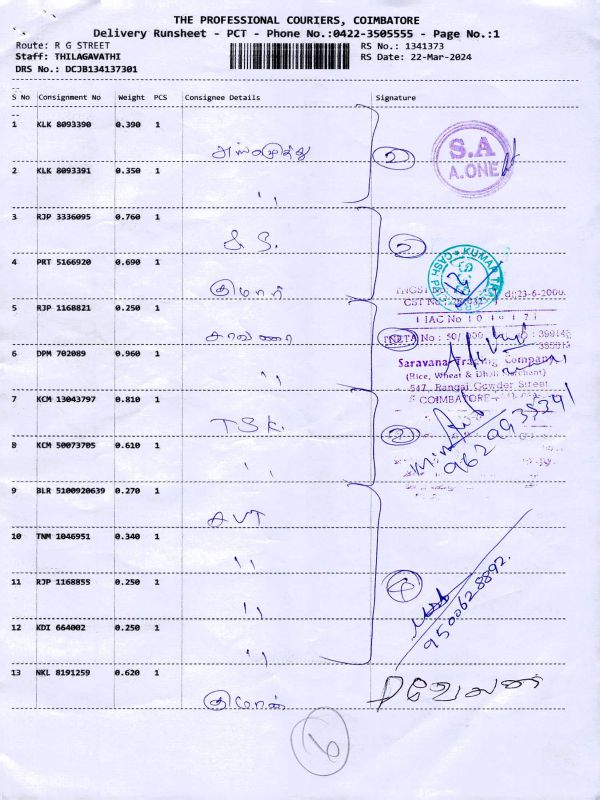 THE PROFESSIONAL COURIERS, COIMBATORE
Delivery Runsheet - PCT - Phone No.:0422-3505555 - Page No.:1
Route: R G STREET
RS No.: 1341373
Staff: THILAGAVATHI
RS Date: 22-Mar-2024
DRS No.: DCJB134137301
S No Consignment No Weight PCS Consignee Details Signature
1 KLK 8093390 0.390 1
2 KLK 8093391 0.350 1 ''
3 RJP 3336095 0.760 1
4 PRT 5166920 0.690 1 குமார்
5 RJP 1168821 0.250 1
6 DPM 702089 0.960 1 ''
7 KCM 13043797 0.810 1 TSK.
8 KCM 50073705 0.610 1 ''
9 BLR 5100920639 0.270 1
10 TNM 1046951 0.340 1 ''
11 RJP 1168855 0.250 1 ''
12 KDI 664002 0.250 1 ''
13 NKL 8191259 0.620 1
2
S.A
A.ONE
2
KUMAR
CASH
dt:23-6-2000
Saravana Trading Company
(Rice, Wheat & Dhall Merchant)
547, Rangai Gowder Street
COIMBATORE
2
4
9500628892.
6